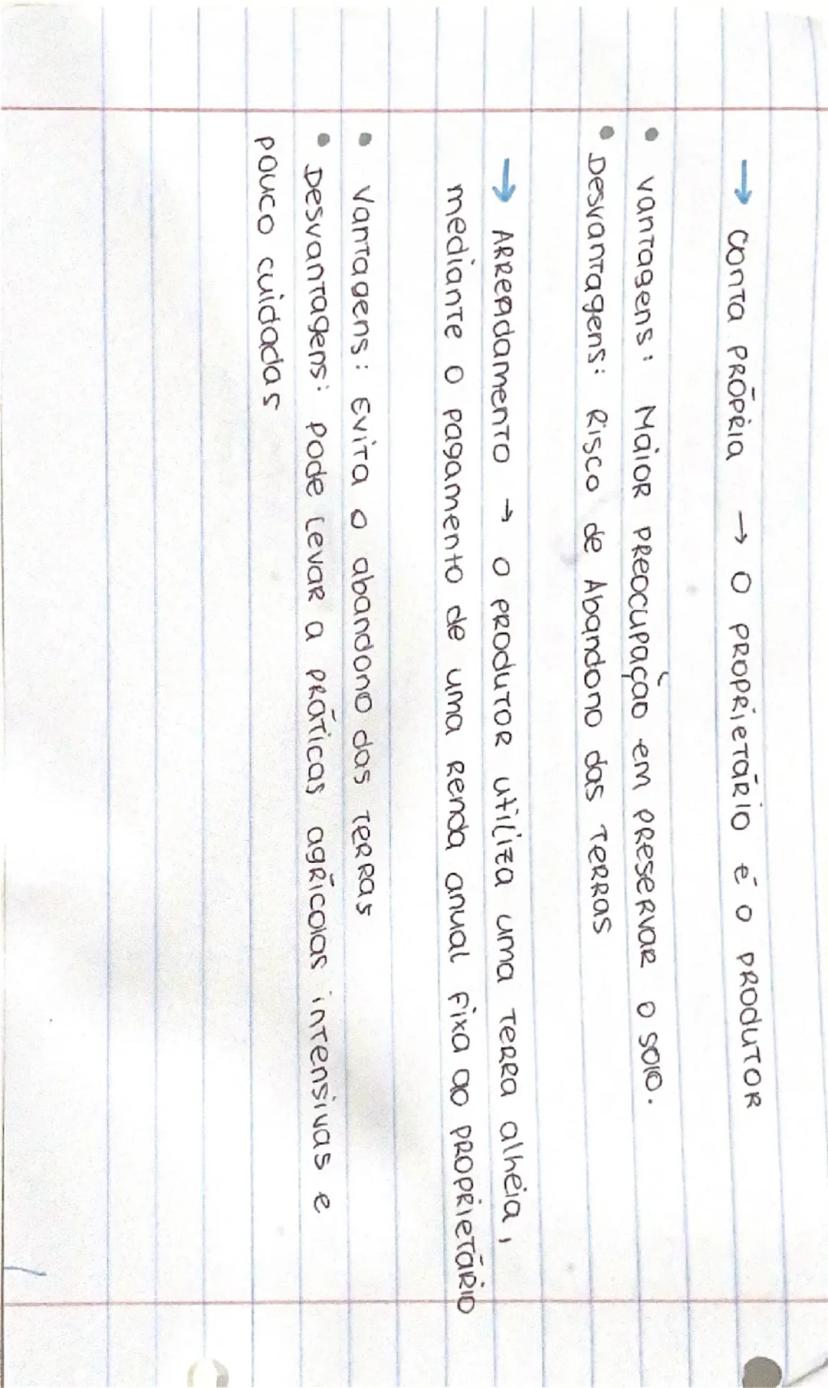 → Conta própria → O proprietário é o produtor
• vantagens: Maior preocupação em preservar o solo.
• Desvantagens: Risco de Abandono das terras
→ Arrendamento → o produtor utiliza uma terra alheia,
mediante o pagamento de uma renda anual fixa ao proprietário
• Vantagens: Evita o abandono das terras
• Desvantagens: pode levar a práticas agrícolas intensivas e
pouco cuidadas